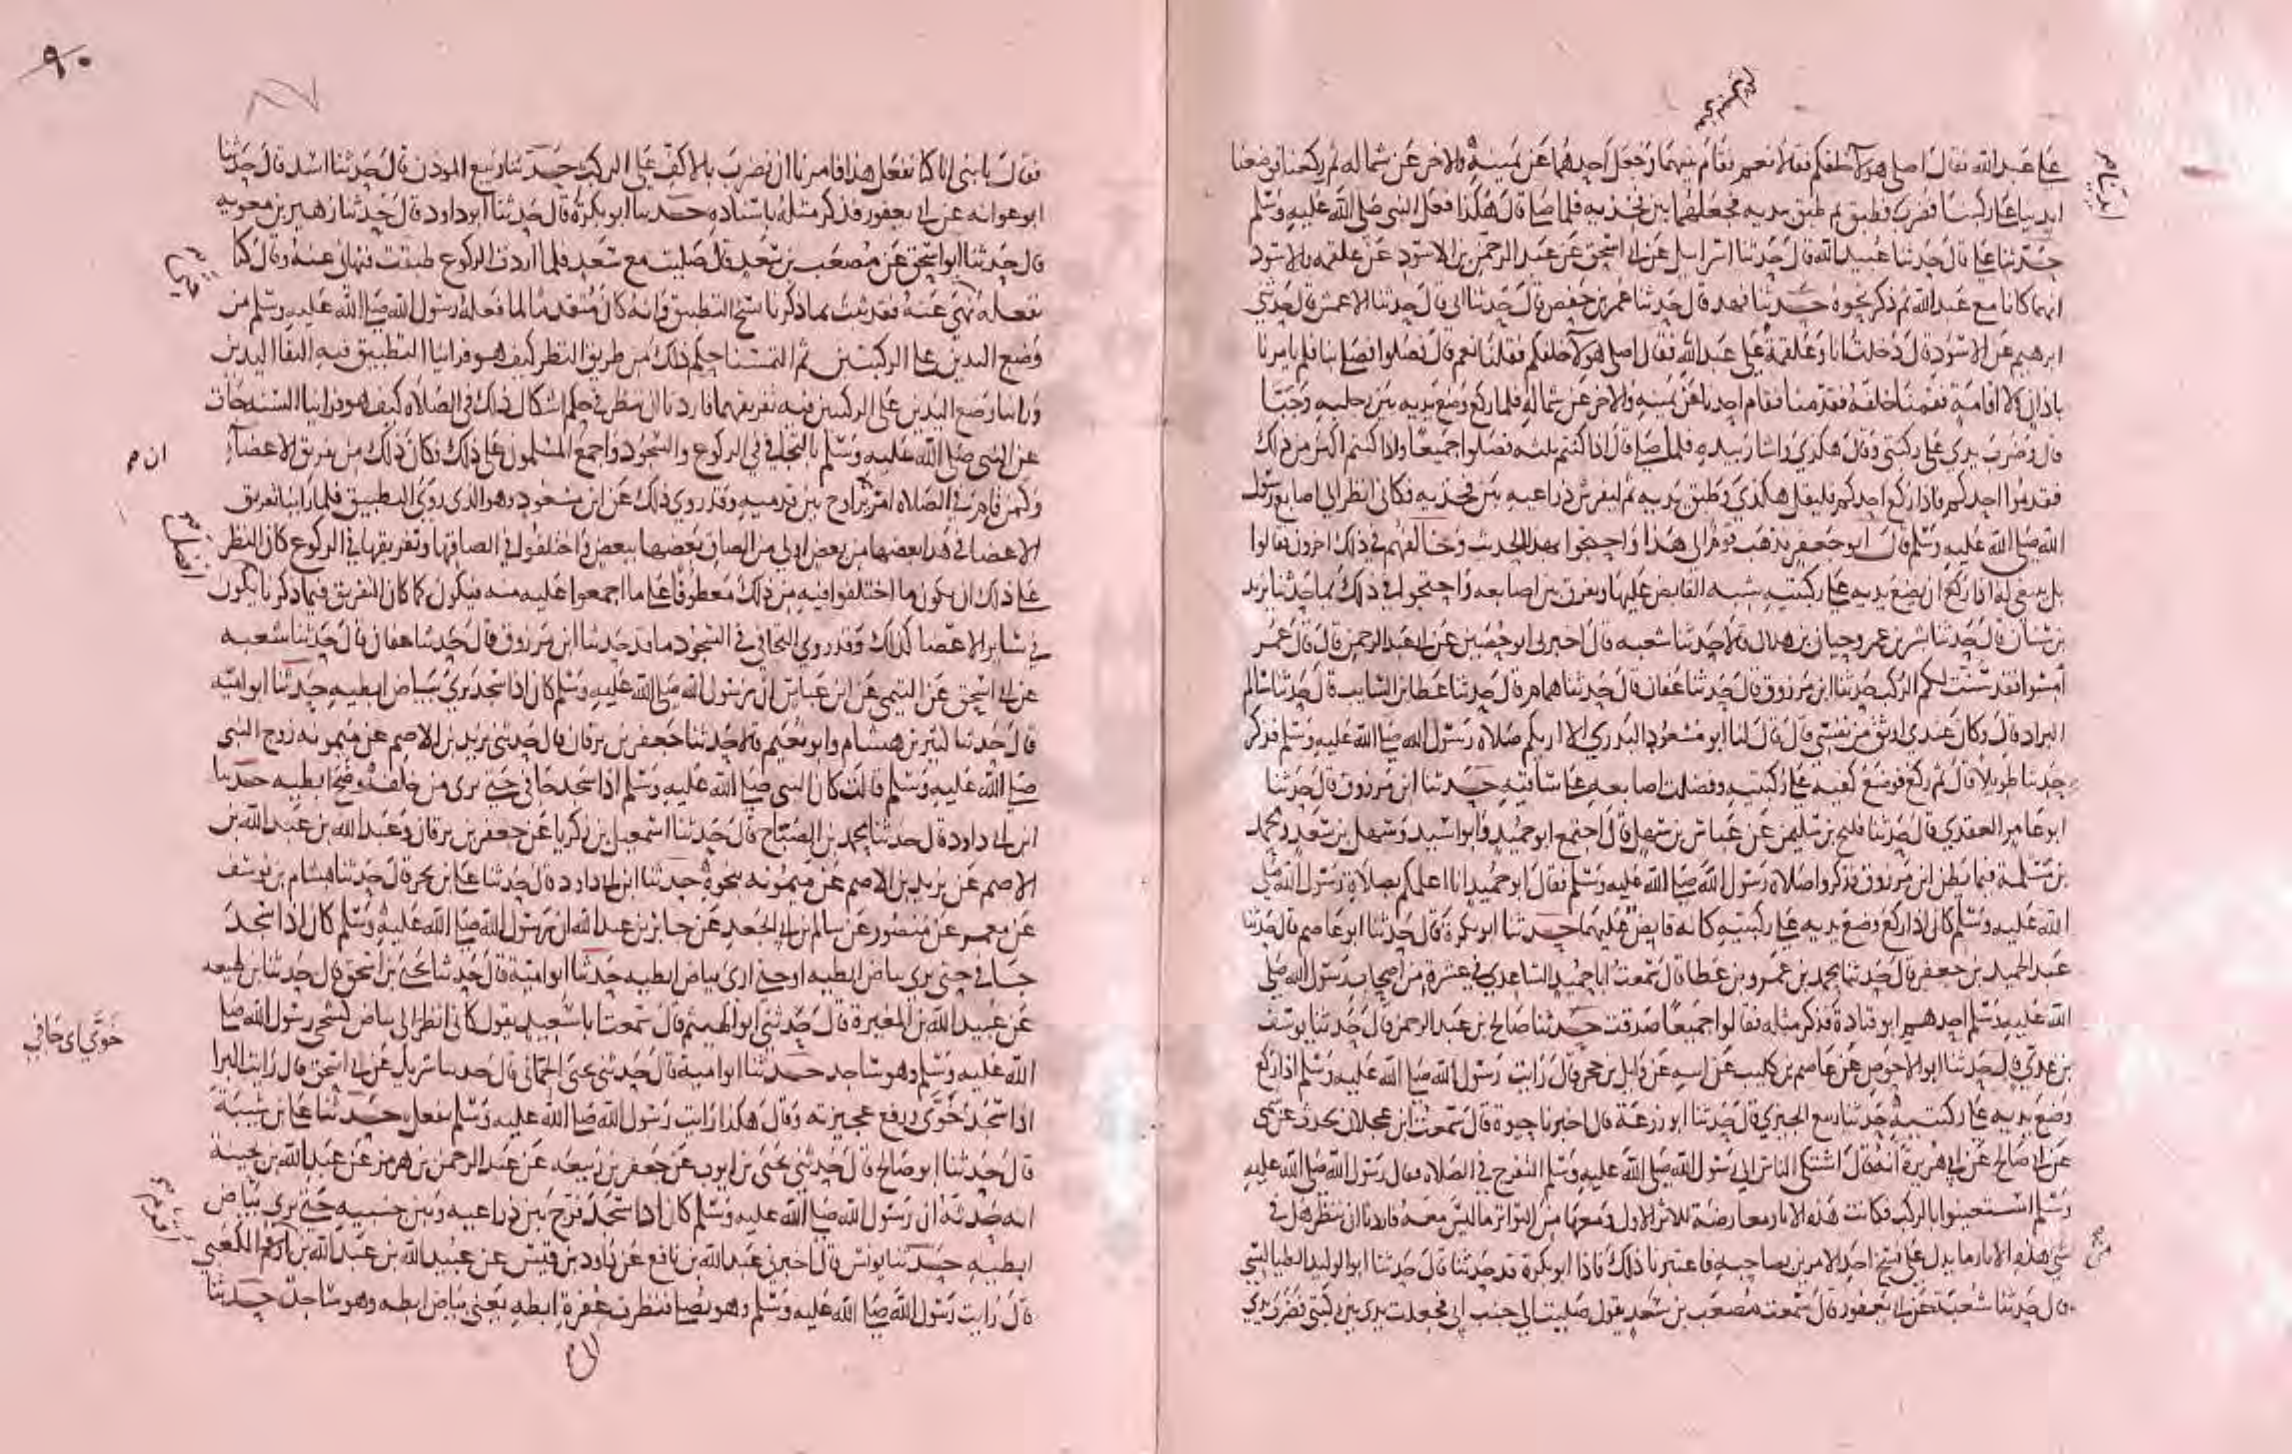 على عبد الله فقال اصلى هولآ خلفكم فقالا نعم فقام بينهما وجعل احدهما عن يمينه والاخر عن شماله ثم ركعنا فوضعنا
ايدينا على ركبنا فضرب فطبق ثم طبق بيديه فجعلهما بين فخذيه فلما صلى قال هكذا فعل النبى صلى الله عليه وسلم
حدثنا على قال حدثنا عبيد الله قال حدثنا اسرايل عن ابى اسحق عن عبد الرحمن بن الاسود عن علقمه والاسود
انهما كانا مع عبد الله ثم ذكر نحوه حدثنا فهد قال حدثنا عمر بن حفص قال حدثنا ابى قال حدثنا الاعمش قال حدثنى
ابرهيم عن الاسود قال دخلت انا وعلقمة على عبد الله فقال اصلى هولآ خلفكم فقلنا نعم قال فصلوا فصلى بنا فلم يامرنا
باذان ولا اقامة فقمنا خلفه فقدمنا فقام احدنا عن يمينه والاخر عن شماله فلما ركع وضع يديه بين رجليه وحنا
قال وضرب يدى على ركبتى وقال هكذى واشار بيده فلما صلى قال اذا كنتم ثلثه فصلوا جميعا واذا كنتم اكثر من ذلك
فقدموا احدكم فاذا ركع احدكم فليقل هكذى وطبق يديه ثم ليفرش ذراعيه بين فخذيه فكانى انظر الى اصابع رسول
الله صلى الله عليه وسلم قال ابو جعفر فذهب قوم الى هذا واحتجوا بهذا الحديث وخالفهم في ذلك اخرون فقالوا
بل ينبغى له اذا ركع ان يضع يديه على ركبتيه شبه القابض عليها ويفرق بين اصابعه واحتجوا في ذلك بما حدثنا يزيد
بن سنان قال حدثنا بشر بن عمر وحبان بن هلال قالا حدثنا شعبه قال اخبرنى ابو حصين عن ابى عبد الرحمن قال قال عمر
امسوا فقد سنت لكم الركب حدثنا ابن مرزوق قال حدثنا عفان قال حدثنا همام قال حدثنا عطا بن السايب قال حدثنا سالم
البراد قال وكان عندى اوثق من نفسى قال قال لنا ابو مسعود البدرى الا اريكم صلاة رسول الله صلى الله عليه وسلم فذكر
حديثا طويلا قال ثم ركع فوضع كفيه على ركبتيه وفضلت اصابعه على ساقيه حدثنا ابن مرزوق قال حدثنا
ابو عامر العقدي قال حدثنا فليح بن سليمن عن عباس بن سهل قال اجتمع ابو حميد وابو اسيد وسهل بن سعد ومحمد
بن مسلمة فيما يظن ابن مرزوق فذكروا صلاه رسول الله صلى الله عليه وسلم فقال ابو حميد انا اعلمكم بصلاة رسول الله صلى
الله عليه وسلم كان اذا ركع وضع يديه على ركبتيه كانه قابض عليهما حدثنا ابو بكرة قال حدثنا ابو عاصم قال حدثنا
عبد الحميد بن جعفر قال حدثنا محمد بن عمرو بن عطا قال سمعت ابا حميد الساعدي في عشرة من اصحاب رسول الله صلى
الله عليه وسلم احدهم ابو قتادة فذكر مثله فقالوا جميعا صدقت حدثنا صالح بن عبد الرحمن قال حدثنا يوسف
بن عدي قال حدثنا ابو الاحوص عن عاصم بن كليب عن ابيه عن وايل بن حجر قال رايت رسول الله صلى الله عليه وسلم اذا ركع
وضع يديه على ركبتيه حدثنا ربيع الجيزى قال حدثنا ابو زرعة قال اخبرنا حيوة قال سمعت ابن عجلان يحدث عن سمى
عن ابى صالح عن ابى هريرة انه قال اشتكى الناس الى رسول الله صلى الله عليه وسلم التفرج في الصلاه فقال رسول الله صلى الله عليه
وسلم استعينوا بالركب فكانت هذه الاثار معارضة للاثر الاول ومعها من التواتر ما ليس معه فاردنا ان ننظر هل في
شى هذه الاثار ما يدل على نسخ احد الامرين بصاحبه فاعتبرنا ذلك فاذا ابو بكرة قد حدثنا قال حدثنا ابو الوليد الطيالسى
قال حدثنا شعبة عن ابى يعفور قال سمعت مصعب بن سعد يقول صليت الى جنب ابى فجعلت يدى بين ركبتى فضرب يدى
٩٠
فقال يا بنى انا كنا نفعل هذا فامرنا ان نضرب بالاكف على الركب حدثنا ربيع الموذن قال حدثنا اسد قال حدثنا
ابو عوانه عن ابى يعفور فذكر مثله باسناده حدثنا ابو بكرة قال حدثنا ابو داود قال حدثنا زهير بن معويه
قال حدثنا ابو اسحق عن مصعب بن سعد قال صليت مع سعد فلما اردت الركوع طبقت فنهانى عنه وقال كنا
نفعله نهى عنه فقد ثبت بما ذكرنا نسخ التطبيق وانه كان متقدما لما فعله رسول الله صلى الله عليه وسلم من
وضع اليدين على الركبتين ثم التمسنا حكم ذلك من طريق النظر كيف هو فراينا التطبيق فيه التقا اليدين
وراينا وضع اليدين على الركبتين فيه تفريقهما فاردنا ان ننظر في حكم اشكال ذلك في الصلاه كيف هو فراينا السنه جات
عن النبى صلى الله عليه وسلم بالتجافي في الركوع والسجود واجمع المسلمون على ذلك فكان ذلك من تفريق الاعضآ
وكمن قام في الصلاه امر ان يراوح بين قدميه وقد روى ذلك عن ابن مسعود وهو الذى روى التطبيق فلما راينا تفريق
الاعضا في هذا بعضها من بعض اولى من الصاق بعضها ببعض واختلفوا في الصاقها وتفريقها في الركوع كان النظر
على ذلك ان يكون ما اختلفوا فيه من ذلك معطوفا على ما اجمعوا عليه منه فيكون كما كان التفريق فيما ذكرنا يكون
في ساير الاعضا كذلك وقد روي التجافى في السجود ما قد حدثنا ابن مرزوق قال حدثنا عفان قال حدثنا شعبه
عن ابى اسحق عن التيمى عن ابن عباس ان رسول الله صلى الله عليه وسلم كان اذا سجد يرى بياض ابطيه حدثنا ابو اميه
قال حدثنا كثير بن هشام وابو نعيم قالا حدثنا جعفر بن برقان قال حدثنى يزيد بن الاصم عن ميمونه زوج النبى
صلى الله عليه وسلم قالت كان النبى صلى الله عليه وسلم اذا سجد جافى حتى يرى من خلفه وضح ابطيه حدثنا
ابن ابى داود قال حدثنا محمد بن الصباح قال حدثنا اسمعيل بن زكريا عن جعفر بن برقان وعبد الله بن عبد الله بن
الاصم عن يزيد بن الاصم عن ميمونه بنحوه حدثنا ابن ابى داود قال حدثنا على بن بحر قال حدثنا هشام بن يوسف
عن معمر عن منصور عن سالم بن ابى الجعد عن جابر بن عبد الله ان رسول الله صلى الله عليه وسلم كان اذا سجد
جافى حتى يرى بياض ابطيه او حتى ارى بياض ابطيه حدثنا ابو امية قال حدثنا يحيى بن اسحق قال حدثنا بن لهيعه
عن عبيد الله بن المغيرة قال حدثنى ابو الهيثم قال سمعت ابا سعيد يقول كانى انظر الى بياض كشحى رسول الله صلى
الله عليه وسلم وهو ساجد حدثنا ابو امية قال حدثنى يحيى الحمانى قال حدثنا شريك عن ابى اسحق قال رايت البرا
اذا سجد خوى ورفع عجيزته وقال هكذا رايت رسول الله صلى الله عليه وسلم يفعل حدثنا على بن شيبة
قال حدثنا ابو صالح قال حدثنى يحيى بن ايوب عن جعفر بن ربيعه عن عبد الرحمن بن هرمز عن عبد الله بن بحينة
انه حدثه ان رسول الله صلى الله عليه وسلم كان اذا سجد فرج بين ذراعيه وبين جنبيه حتى يرى بياض
ابطيه حدثنا يونس قال اخبرنى عبد الله بن نافع عن داود بن قيس عن عبيد الله بن عبد الله بن اقرم الكعبي
قال رايت رسول الله صلى الله عليه وسلم وهو يصلى فنظرت عفرة ابطه يعنى بياض ابطه وهو ساجد حدثنا
ان م
خوى اى جافي